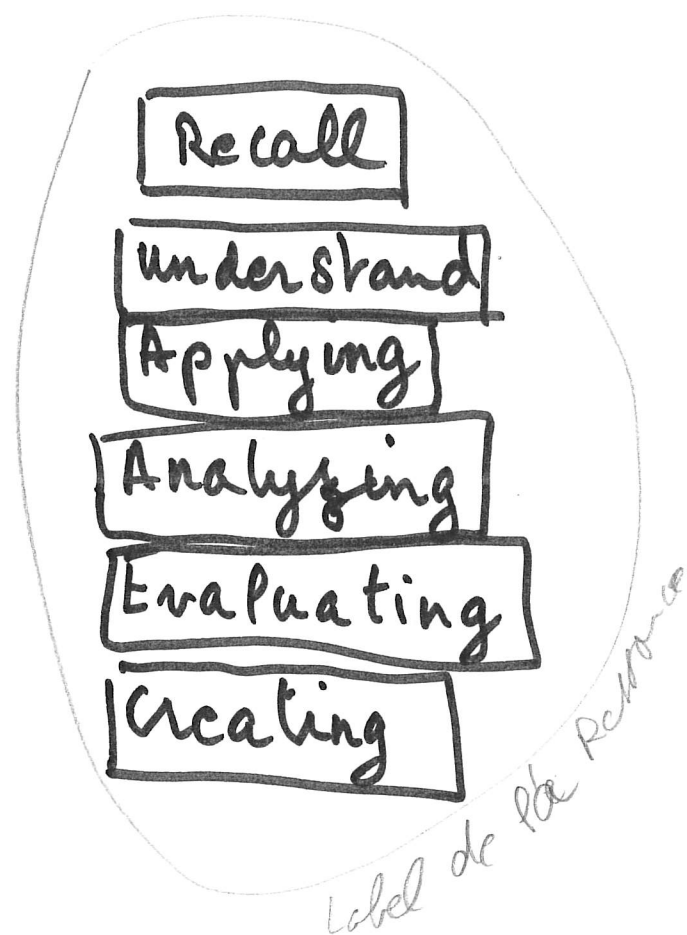 Recall
understand
Applying
Analyzing
Evaluating
Creating
Label de